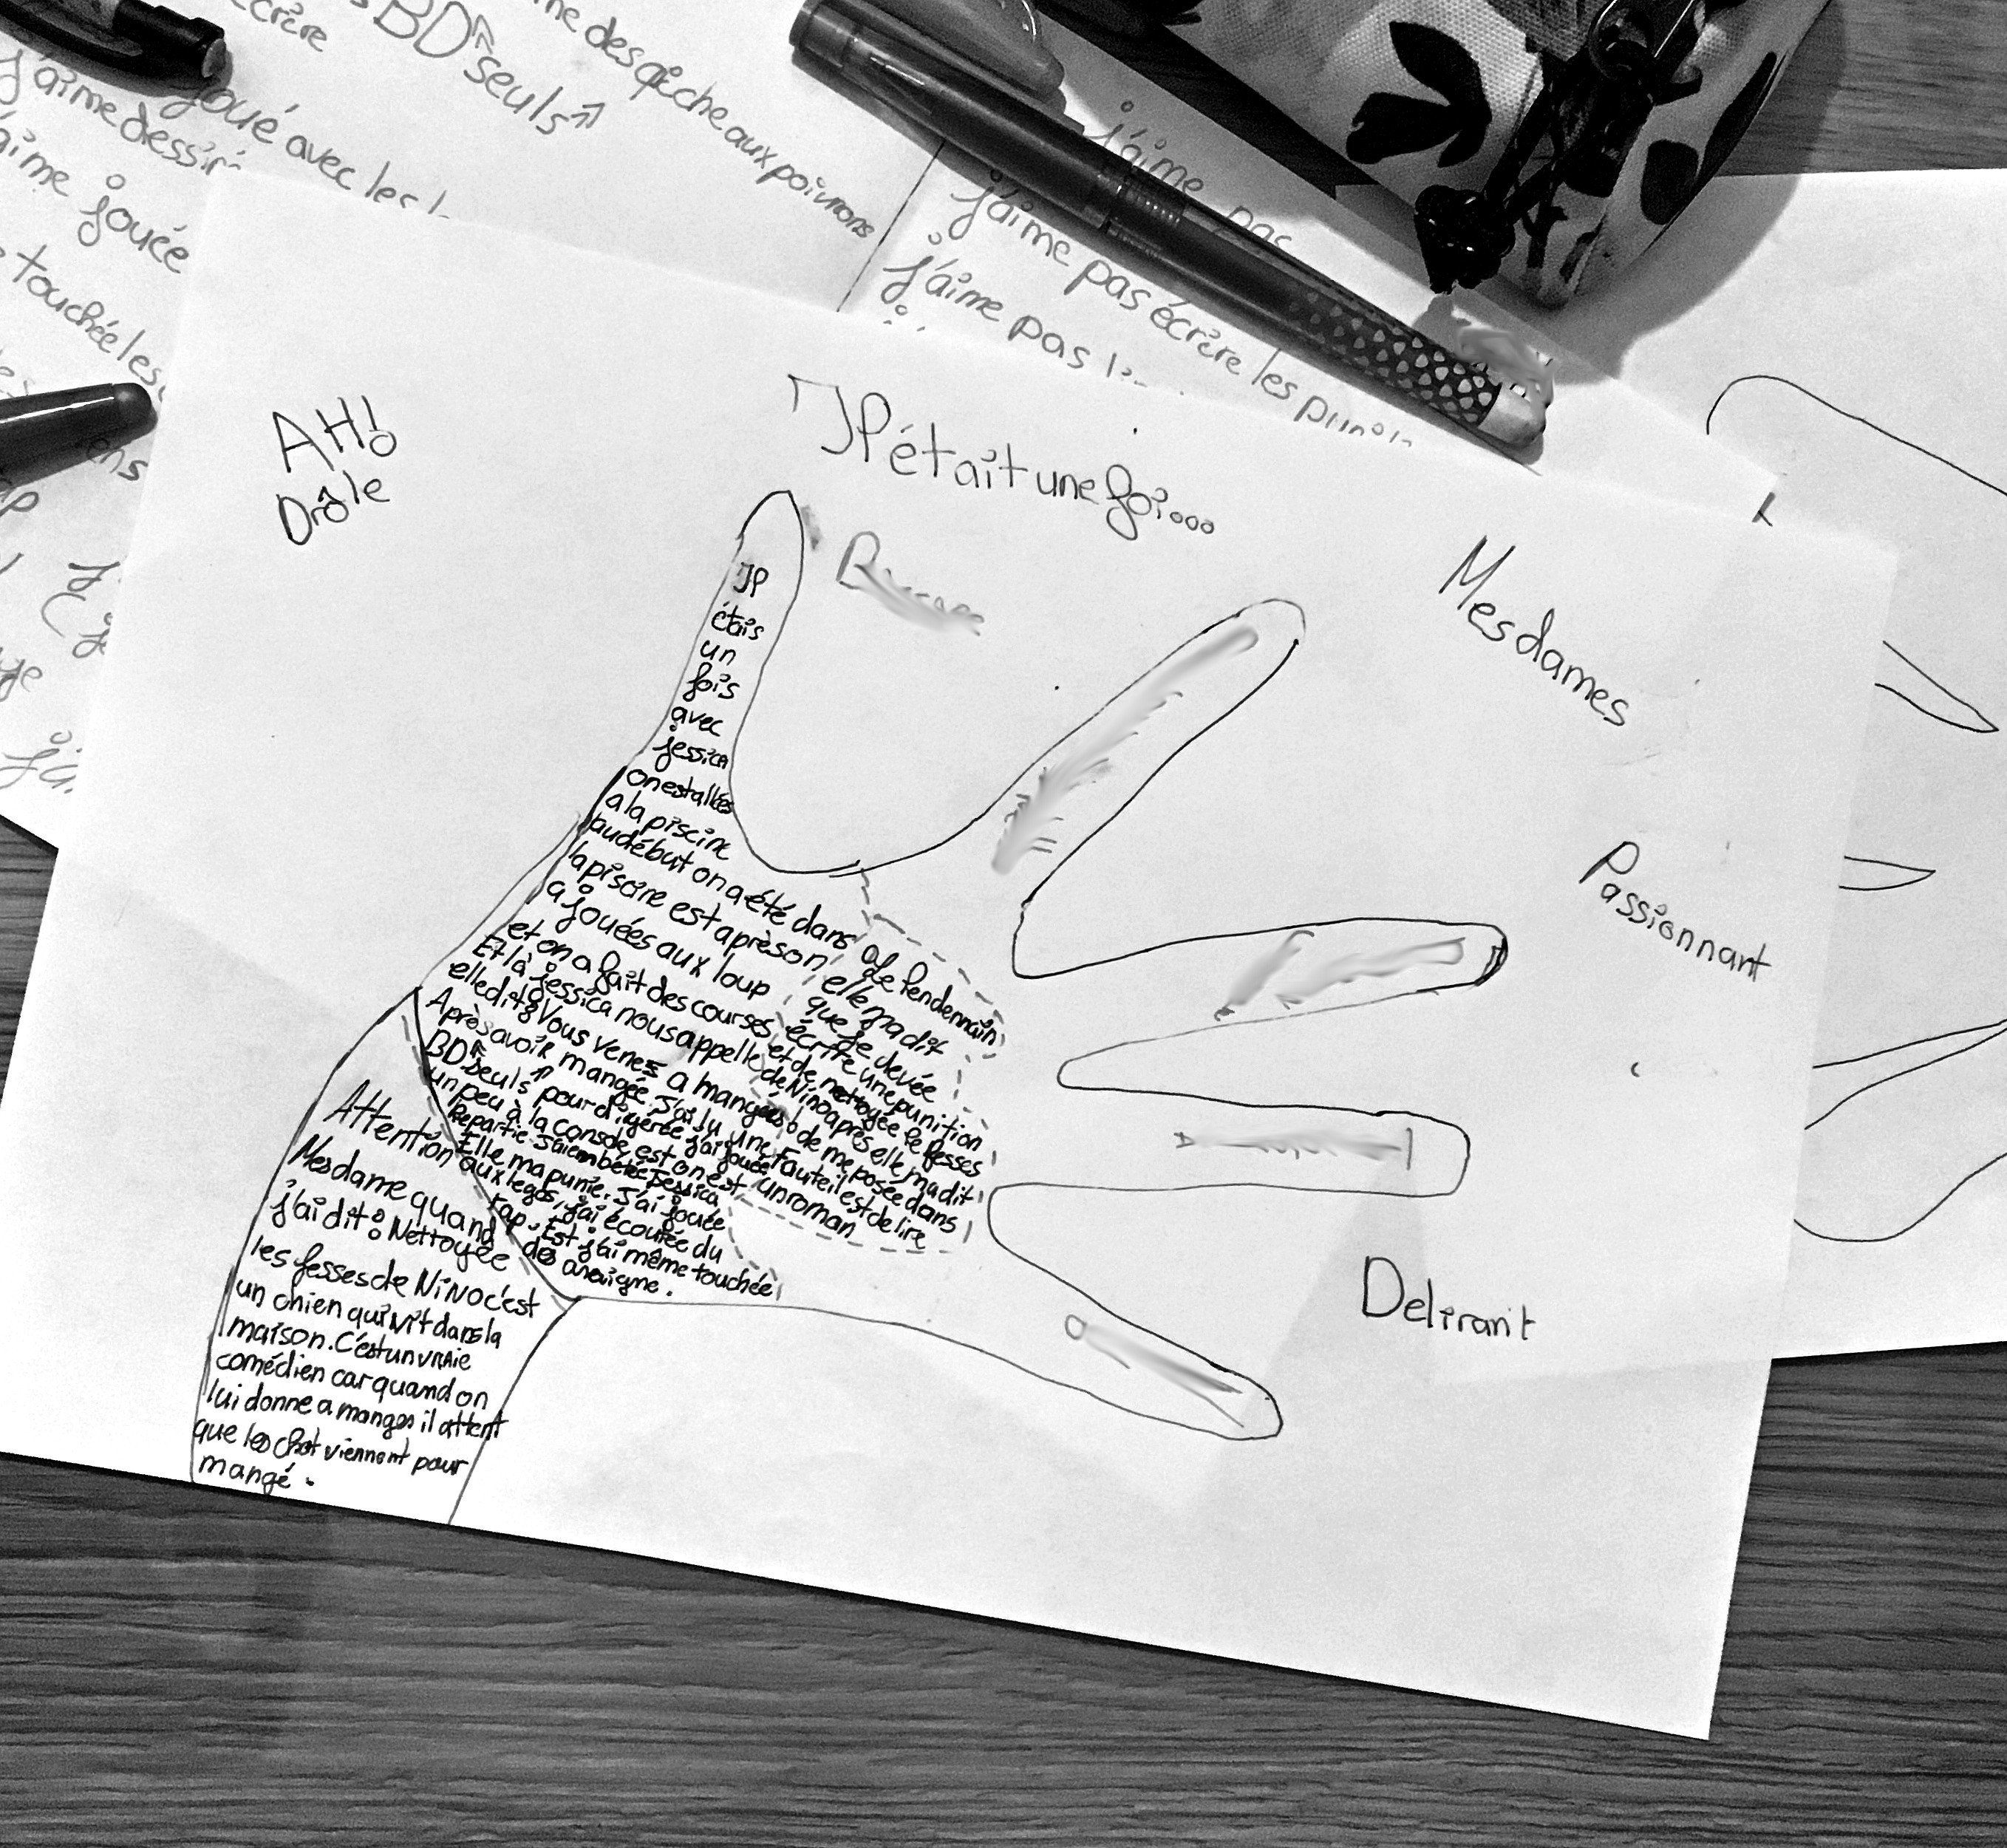 BD
seuls
écrire
j'aime dessi
joué avec les
aime jouée
touchée les
me des pêche aux poivrons
j'aime pas
j'aime pas écrire les
j'aime pas
AH!
Drôle
JP était une foi...
Mes dames
Passionnant
Delirant
JP
étais
un
fois
avec
jessica
on est allées
a la piscine
au début on a été dans
la piscine est après on
a jouées aux loup
et on a fait des courses
Et là jessica nous appelle
elle dit: Vous venez a mangées!
Après avoir mangée. J'ai lu une
BD seuls pour digérée j'ai jouée
un peu à la console est on est
Repartie. J'ai embêtée Jessica
Elle ma punie. J'ai jouée
aux legos, j'ai écoutée du
rap. Est j'ai même touchée
des araigne.
Le lendemain
elle ma dit
que je devée
écrire une punition
et de nettoyée le fesses
de Nino après elle ma dit
de me posée dans
fauteil est de lire
un roman
Attention
Mesdame quand
j'ai dit: Nettoyée
les fesses de NiNO c'est
un chien qui vit dans la
maison. C'est un vraie
comédien car quand on
lui donne a manger il attent
que les chat viennent pour
mangé.